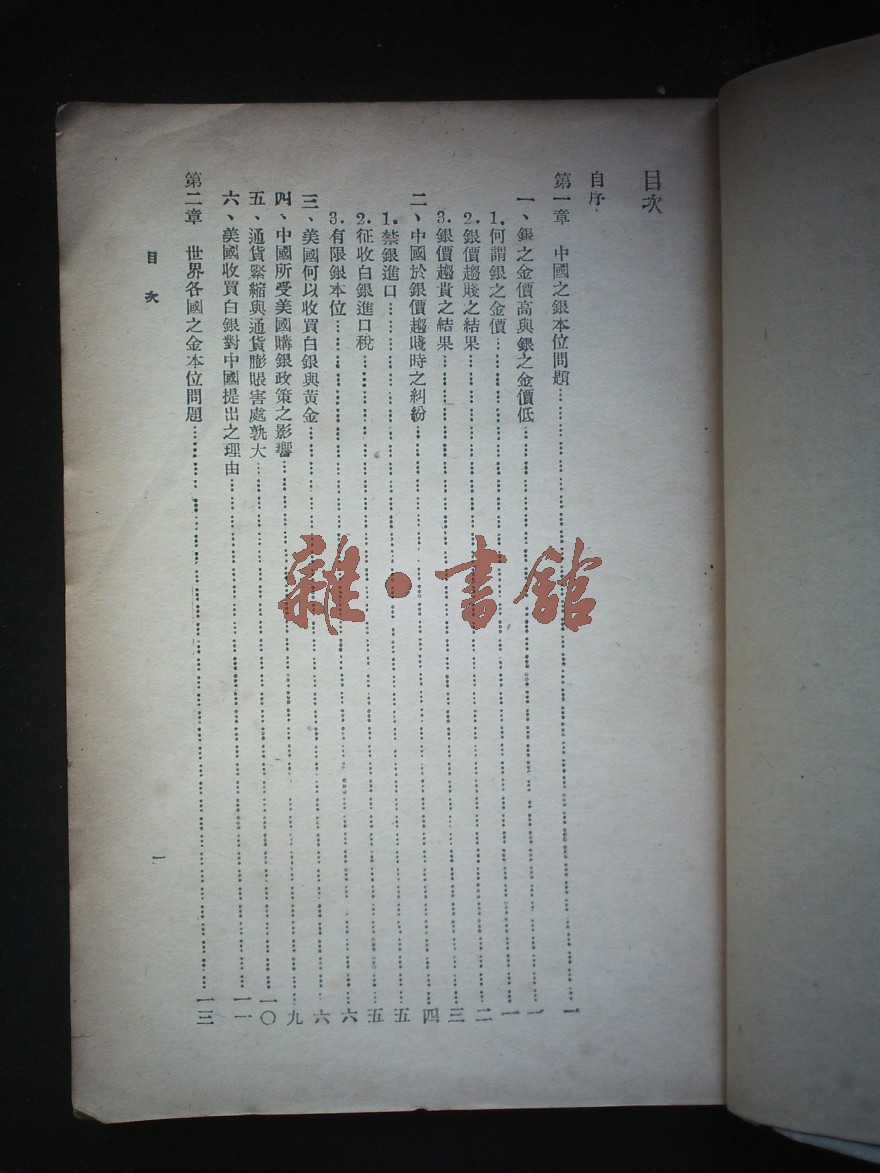 目次
自序
第一章 中國之銀本位問題……一
一、銀之金價高與銀之金價低……一
1.何謂銀之金價……一
2.銀價趨賤之結果……二
3.銀價趨貴之結果……三
二、中國於銀價趨賤時之糾紛……四
1.禁銀進口……五
2.征收白銀進口稅……五
3.有限銀本位……六
三、美國何以收買白銀與黃金……六
四、中國所受美國購銀政策之影響……九
五、通貨緊縮與通貨膨賬害處孰大……一〇
六、美國收買白銀對中國提出之理由……一一
第二章 世界各國之金本位問題……一三
目次
一
雜·書館